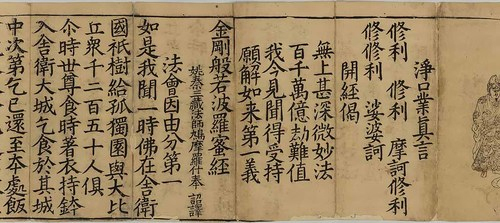 淨口業真言
修利　修利　摩訶修利
修修利　娑婆訶
開經偈
無上甚深微妙法
百千萬億劫難值
我今見聞得受持
願解如来第一義
金剛般若波羅蜜經
姚秦三藏法師鳩摩羅什奉　詔譯
法會因由分第一
如是我聞一時佛在舍衛
國祇樹給孤獨園與大比
丘衆千二百五十人俱
尒時世尊食時著衣持鉢
入舍衛大城乞食於其城
中次第乞已還至本處飯